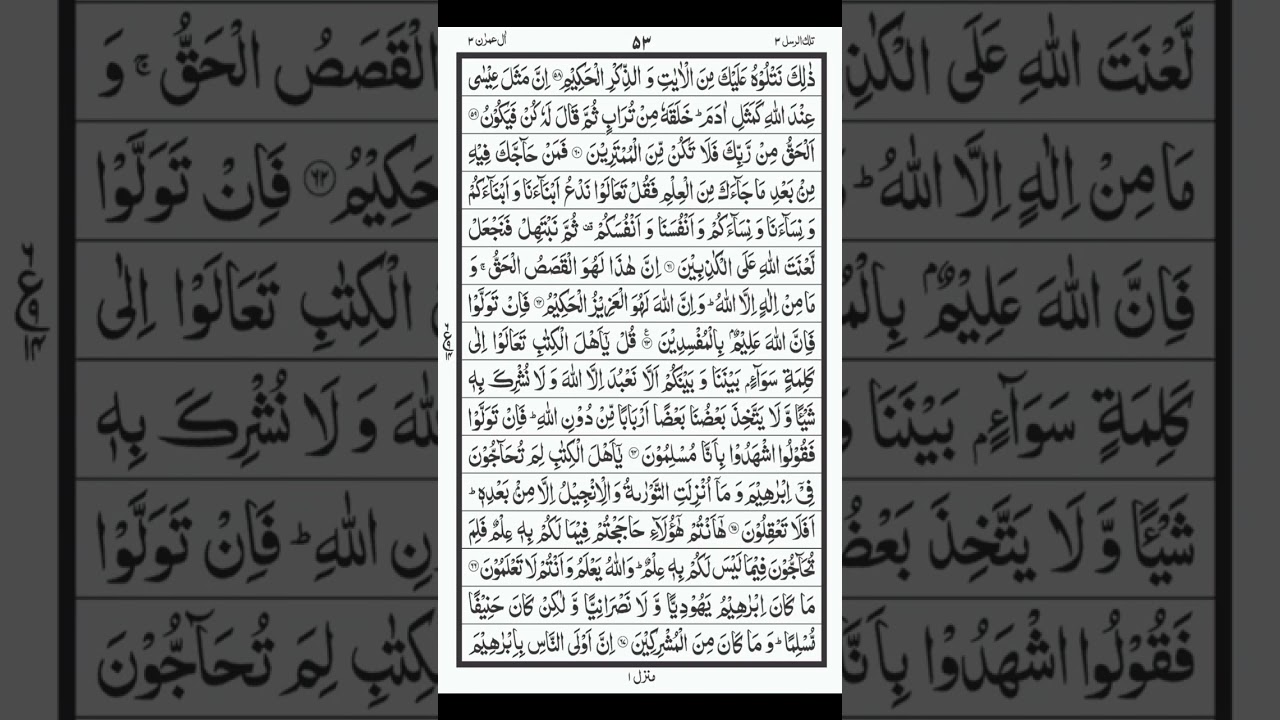 تلك الرسل ٣ ۵۳ اٰل عمرٰن ٣
ذٰلِكَ نَتْلُوْهُ عَلَيْكَ مِنَ الْاٰيٰتِ وَ الذِّكْرِ الْحَكِيْمِ ۵۸ اِنَّ مَثَلَ عِيْسٰى
عِنْدَ اللّٰهِ كَمَثَلِ اٰدَمَ ؕ خَلَقَهٗ مِنْ تُرَابٍ ثُمَّ قَالَ لَهٗ كُنْ فَيَكُوْنُ ۵۹
اَلْحَقُّ مِنْ رَّبِّكَ فَلَا تَكُنْ مِّنَ الْمُمْتَرِيْنَ ۶۰ فَمَنْ حَآجَّكَ فِيْهِ
مِنْۢ بَعْدِ مَا جَآءَكَ مِنَ الْعِلْمِ فَقُلْ تَعَالَوْا نَدْعُ اَبْنَآءَنَا وَ اَبْنَآءَكُمْ
وَ نِسَآءَنَا وَ نِسَآءَكُمْ وَ اَنْفُسَنَا وَ اَنْفُسَكُمْ ۫ ثُمَّ نَبْتَهِلْ فَنَجْعَلْ
لَّعْنَتَ اللّٰهِ عَلَى الْكٰذِبِيْنَ ۶۱ اِنَّ هٰذَا لَهُوَ الْقَصَصُ الْحَقُّ ۚ وَ
مَا مِنْ اِلٰهٍ اِلَّا اللّٰهُ ؕ وَ اِنَّ اللّٰهَ لَهُوَ الْعَزِيْزُ الْحَكِيْمُ ۶۲ فَاِنْ تَوَلَّوْا
فَاِنَّ اللّٰهَ عَلِيْمٌۢ بِالْمُفْسِدِيْنَ ۶۳ قُلْ يٰۤاَهْلَ الْكِتٰبِ تَعَالَوْا اِلٰى
كَلِمَةٍ سَوَآءٍۭ بَيْنَنَا وَ بَيْنَكُمْ اَلَّا نَعْبُدَ اِلَّا اللّٰهَ وَ لَا نُشْرِكَ بِهٖ
شَيْـًٔا وَّ لَا يَتَّخِذَ بَعْضُنَا بَعْضًا اَرْبَابًا مِّنْ دُوْنِ اللّٰهِ ؕ فَاِنْ تَوَلَّوْا
فَقُوْلُوا اشْهَدُوْا بِاَنَّا مُسْلِمُوْنَ ۶۴ يٰۤاَهْلَ الْكِتٰبِ لِمَ تُحَآجُّوْنَ
فِيْۤ اِبْرٰهِيْمَ وَ مَاۤ اُنْزِلَتِ التَّوْرٰىةُ وَ الْاِنْجِيْلُ اِلَّا مِنْۢ بَعْدِهٖ ؕ
اَفَلَا تَعْقِلُوْنَ ۶۵ هٰۤاَنْتُمْ هٰۤؤُلَآءِ حَاجَجْتُمْ فِيْمَا لَكُمْ بِهٖ عِلْمٌ فَلِمَ
تُحَآجُّوْنَ فِيْمَا لَيْسَ لَكُمْ بِهٖ عِلْمٌ ؕ وَ اللّٰهُ يَعْلَمُ وَ اَنْتُمْ لَا تَعْلَمُوْنَ ۶۶
مَا كَانَ اِبْرٰهِيْمُ يَهُوْدِيًّا وَّ لَا نَصْرَانِيًّا وَّ لٰكِنْ كَانَ حَنِيْفًا
مُّسْلِمًا ؕ وَ مَا كَانَ مِنَ الْمُشْرِكِيْنَ ۶۷ اِنَّ اَوْلَى النَّاسِ بِاِبْرٰهِيْمَ
منزل ۱